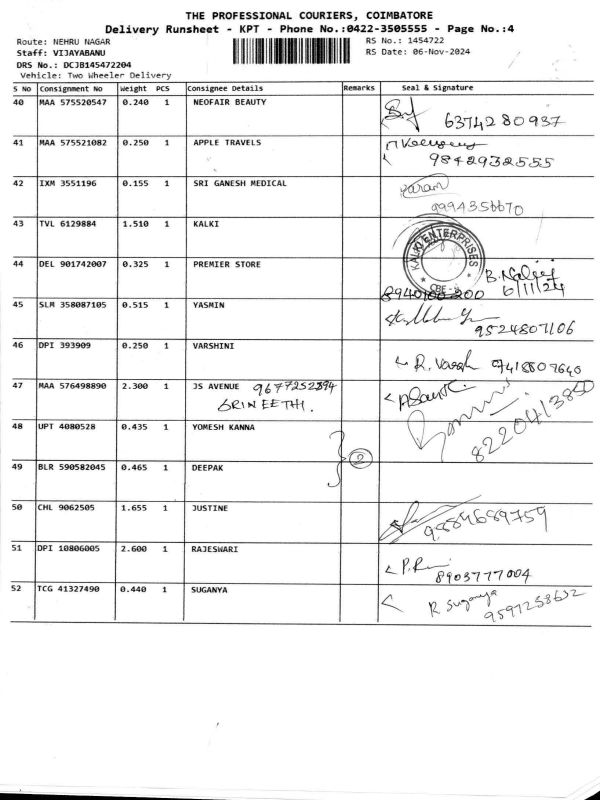 THE PROFESSIONAL COURIERS, COIMBATORE
Delivery Runsheet - KPT - Phone No.:0422-3505555 - Page No.:4
Route: NEHRU NAGAR RS No.: 1454722
Staff: VIJAYABANU RS Date: 06-Nov-2024
DRS No.: DCJB145472204
Vehicle: Two Wheeler Delivery
S No Consignment No Weight PCS Consignee Details Remarks Seal & Signature
40 MAA 575520547 0.240 1 NEOFAIR BEAUTY
6374280937
41 MAA 575521082 0.250 1 APPLE TRAVELS
9842932555
42 IXM 3551196 0.155 1 SRI GANESH MEDICAL
9994356670
43 TVL 6129884 1.510 1 KALKI
KALKI ENTERPRISES
CBE
44 DEL 901742007 0.325 1 PREMIER STORE
8940100200 6/11/24
45 SLM 358087105 0.515 1 YASMIN
9524807106
46 DPI 393909 0.250 1 VARSHINI
R. Varsh 9418807640
47 MAA 576498890 2.300 1 JS AVENUE 9677252894
SRINEETHI.
48 UPT 4080528 0.435 1 YOMESH KANNA
8220413850
2
49 BLR 590582045 0.465 1 DEEPAK
50 CHL 9062505 1.655 1 JUSTINE
9884689759
51 DPI 10806005 2.600 1 RAJESWARI
8903777004
52 TCG 41327490 0.440 1 SUGANYA
R Suganya
9597258632